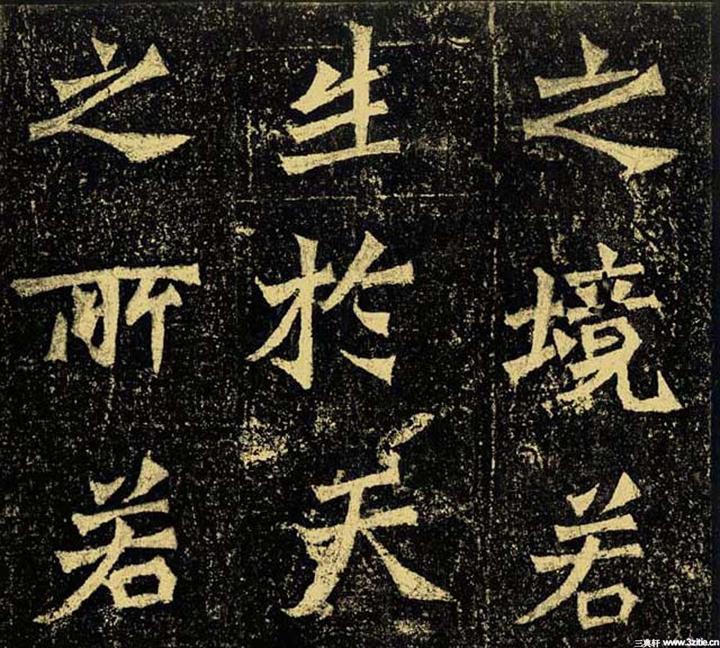 之境若
生於天
之所若
www.3zitie.cn